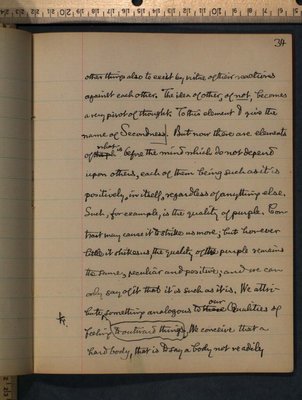 34
other things also to exist by virtue of their reactions
against each other. The idea of other, of not, becomes
a very pivot of thought. To this element I give the
name of Secondness. But now there are elements
of what is before the mind which do not depend
upon others, each of them being such as it is
positively, in itself, regardless of anything else.
Such, for example, is the quality of purple. Con-
trast may cause it to strike us more; but however
little it strikes us, the quality of the purple remains
the same, peculiar and positive; and we can
only say of it that it is such as it is. We attri-
bute something analogous to our Qualities of
feeling to outward things. We conceive that a
hard body, that is to say a body not readily